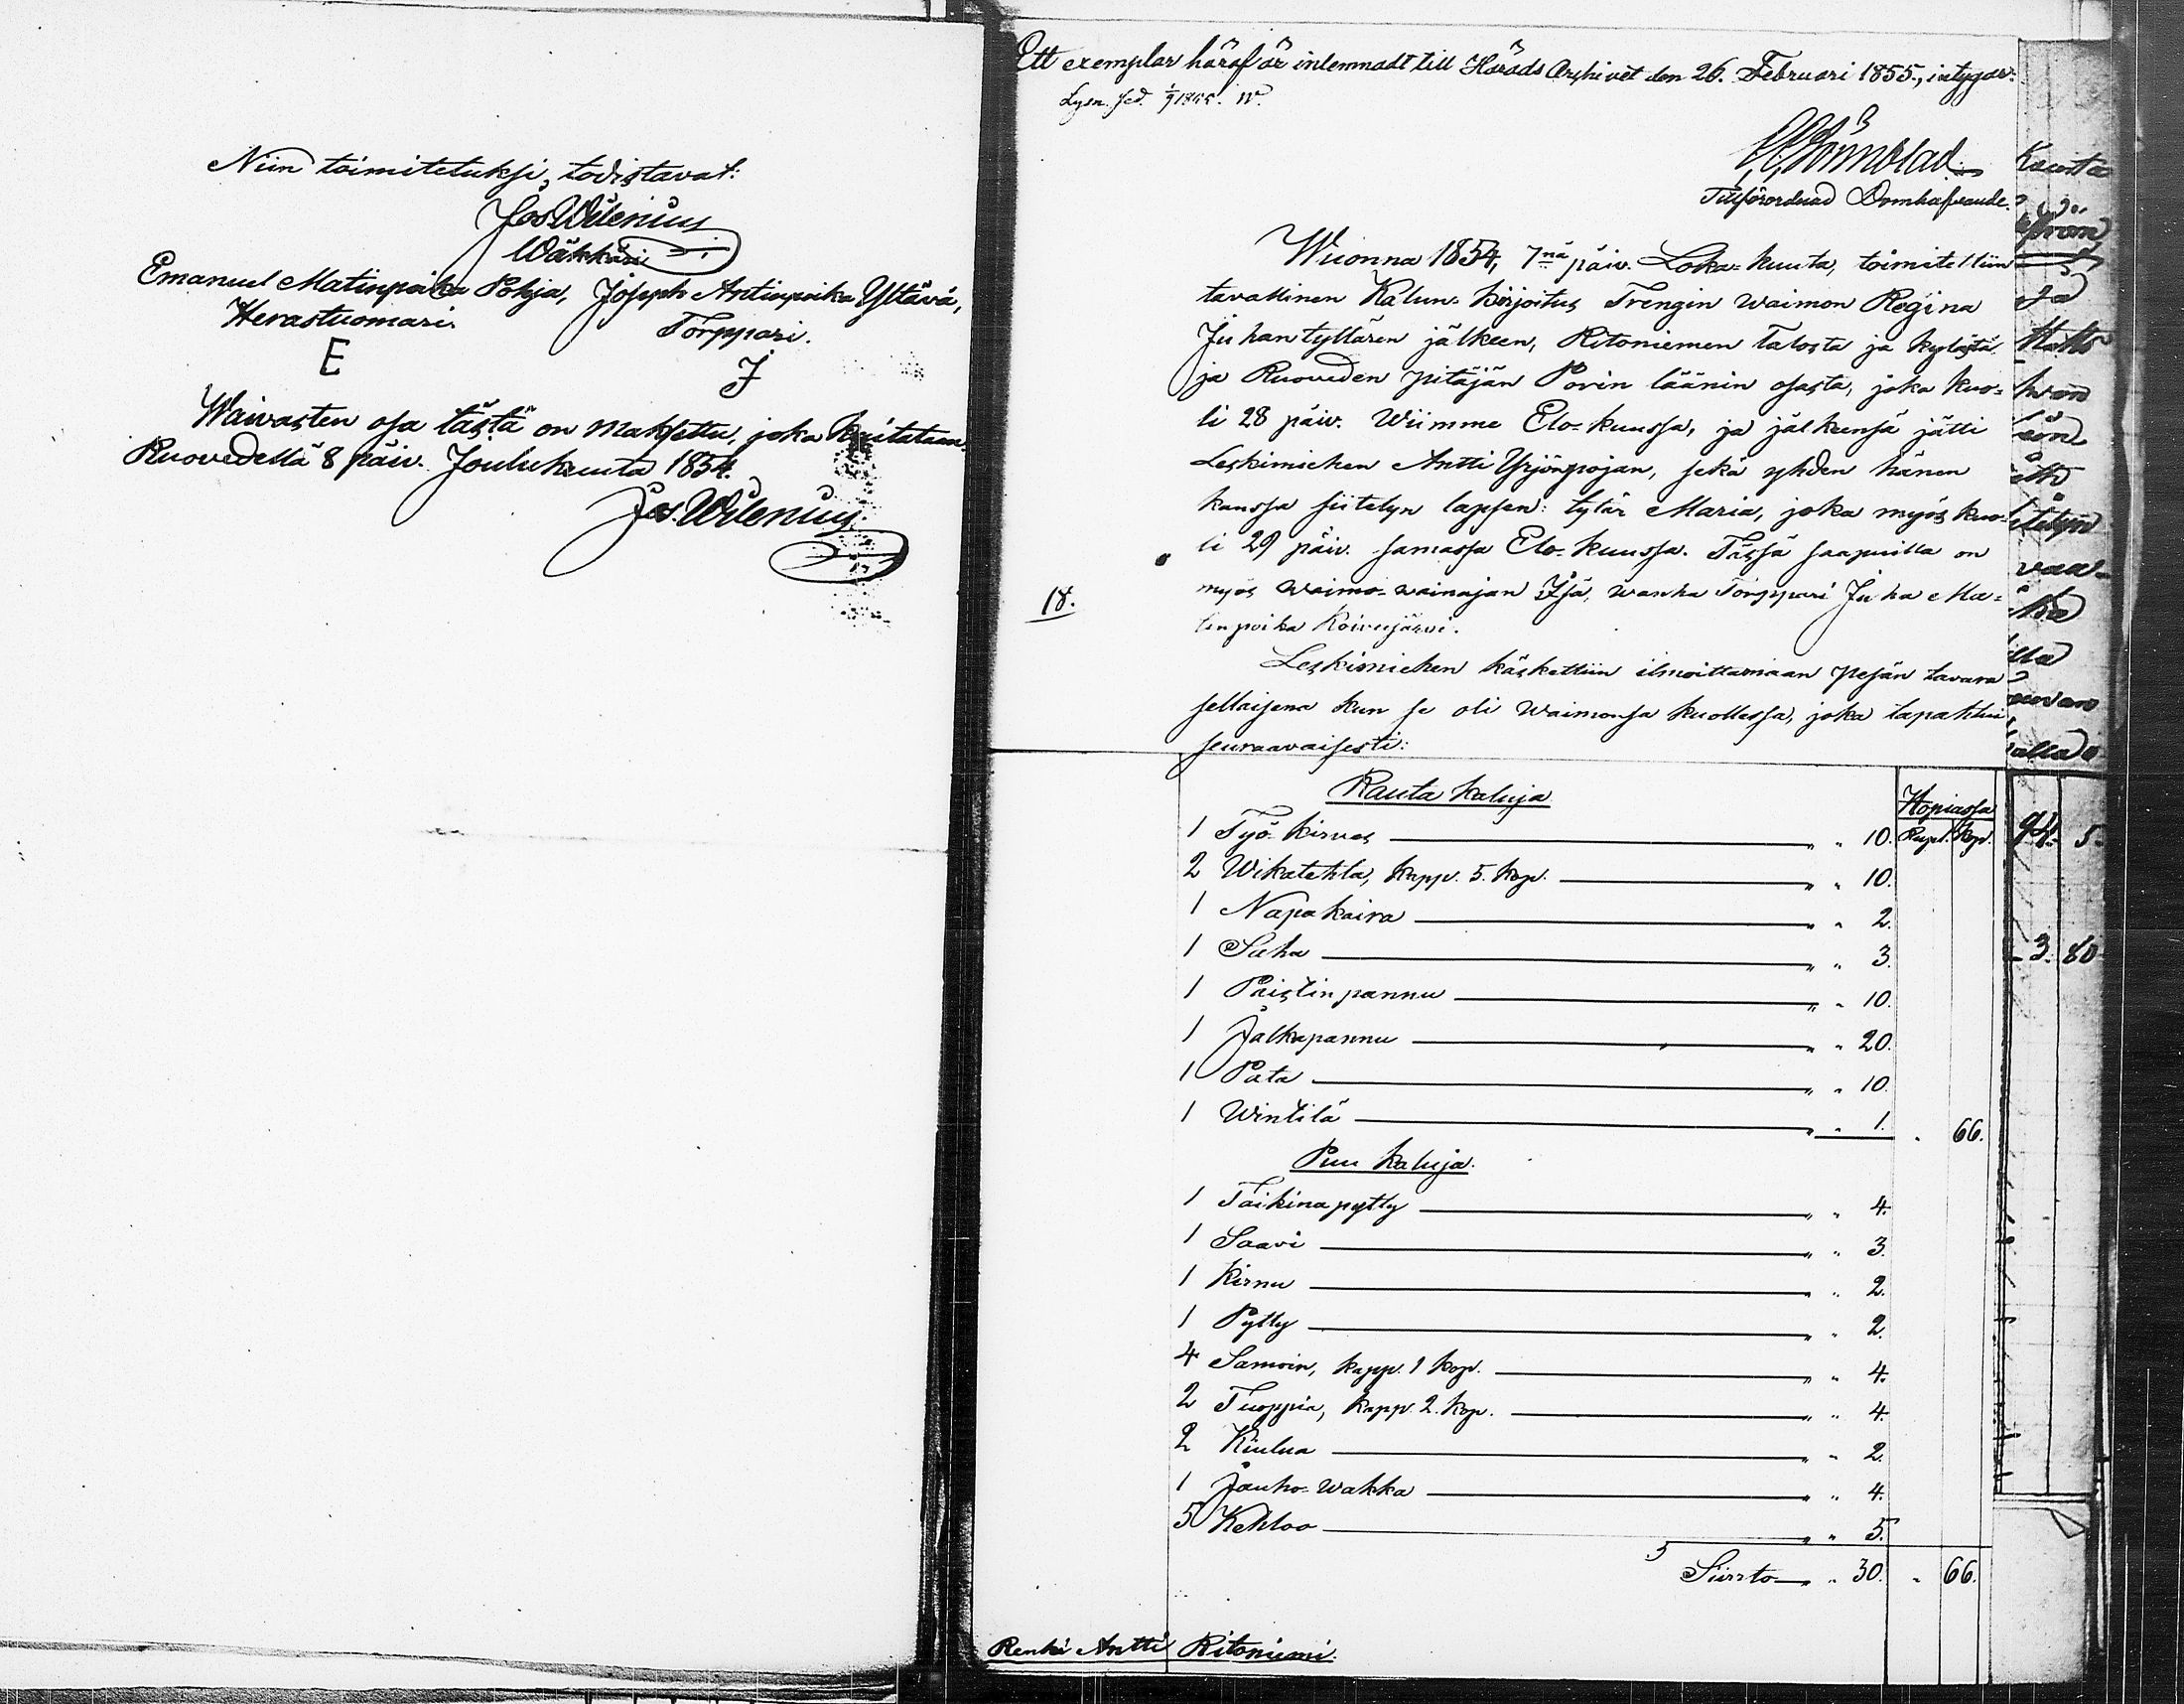 Niin toimitetuksi, todistavat:
Jos. Wilenius
Wäkkäri
Emanuel Matinpoika Pohja, Joseph Antinpoika Yltävä,
Herastuomari. Torppari.
E J
Waivasten osa tästä on maksettu, joka kuitataan.
Ruovedellä 8 päiv. Joulukuuta 1854.
Jos. Wilenius
Ett exemplar häraf är inlemnadt till Härads Archivet den 26. Februari 1855., intygar.
Tillförordnad Domhafvande.
Wuonna 1854, 7nä päiv. Loka-kuuta, toimitettiin
tavallinen Kalun-kirjoitus Trengin waimon Regina
Juhantyttären jälkeen, Ritoniemen Talosta ja kylästä
ja Ruoveden pitäjän Porin läänin osasta, joka kuo-
li 28 päiv. Wiimme Elo-kuussa, ja jälkeensä jätti
Leskimiehen Antti Yrjönpojan, sekä yhden hänen
kanssa siitetyn lapsen: tytär Maria, joka myös kuo-
li 29 päiv. samassa Elo-kuussa. Tässä saapuilla on
18.
myös waimo-wainajan Isä, wanha Torppari Juha Ma-
tinpoika Koivujärvi.
Leskimiehen käskettiin ilmoittamaan pesän tavara
sellaisena kun se oli waimonsa kuollessa, joka tapahtui
seuraavaisesti:
Rauta kaluja Hopiassa
Rupl. Kop.
1 Työ-kirves " " 10.
2 Wikatehta, kapp. 5. kop. " " 10.
1 Napakaira " " 2.
1 Saha " " 3.
1 Paistinpannu " " 10.
1 Jalkapannu " " 20.
1 Pata " " 10.
1 Wintilä " " 1. " 66.
Puu kaluja.
1 Taikinapytty " " 4.
1 Saavi " " 3.
1 Kirnu " " 2.
1 Pytty " " 2.
4 Samoin, kapp. 1 kop. " " 4.
2 Tuoppia, kapp. 2. kop. " " 4.
2 Kiulua " " 2.
1 Jauho-wakka " " 4.
5 Kehloo " " 5.
Siirto " 30. " 66.
Renki Antti Ritoniemi.